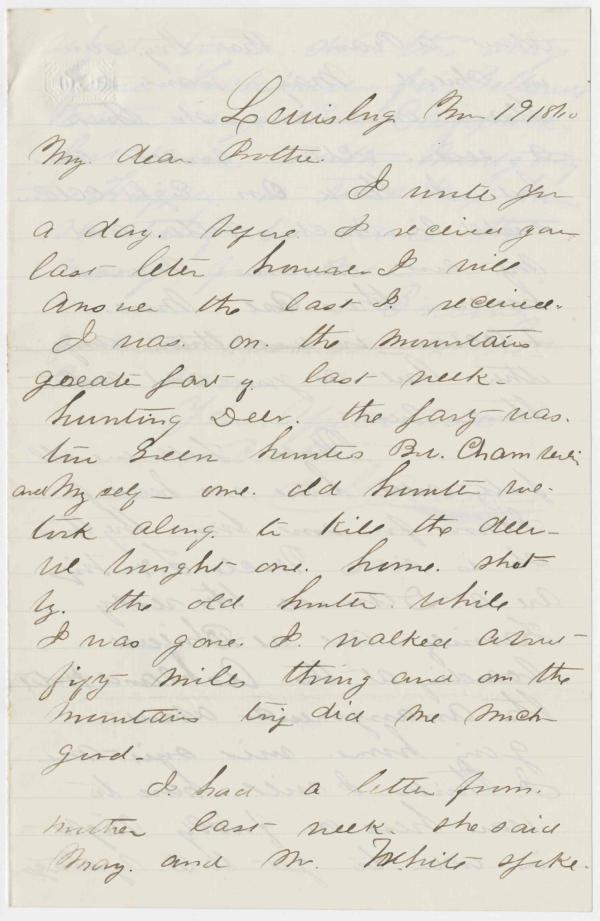 Lewisbrg Nov 19 18
My dear Brother.
I wrote you
a day. before I received your
last leter however I will
answer the last I. receive.
I was. on. the mountains
last week.
hunting Deer. the party was.
Green hunters Br. Chamberlin
and Myself — one. old hunter we.
took along. to kill the deer —
we brought one. home. shot
by. the old hunter. while
I was gone. I. walked about
fifty miles thing and on the
mountains trip did me much
good —
I. had a letter from.
mother last week. she said
May. and Mr. White spke.